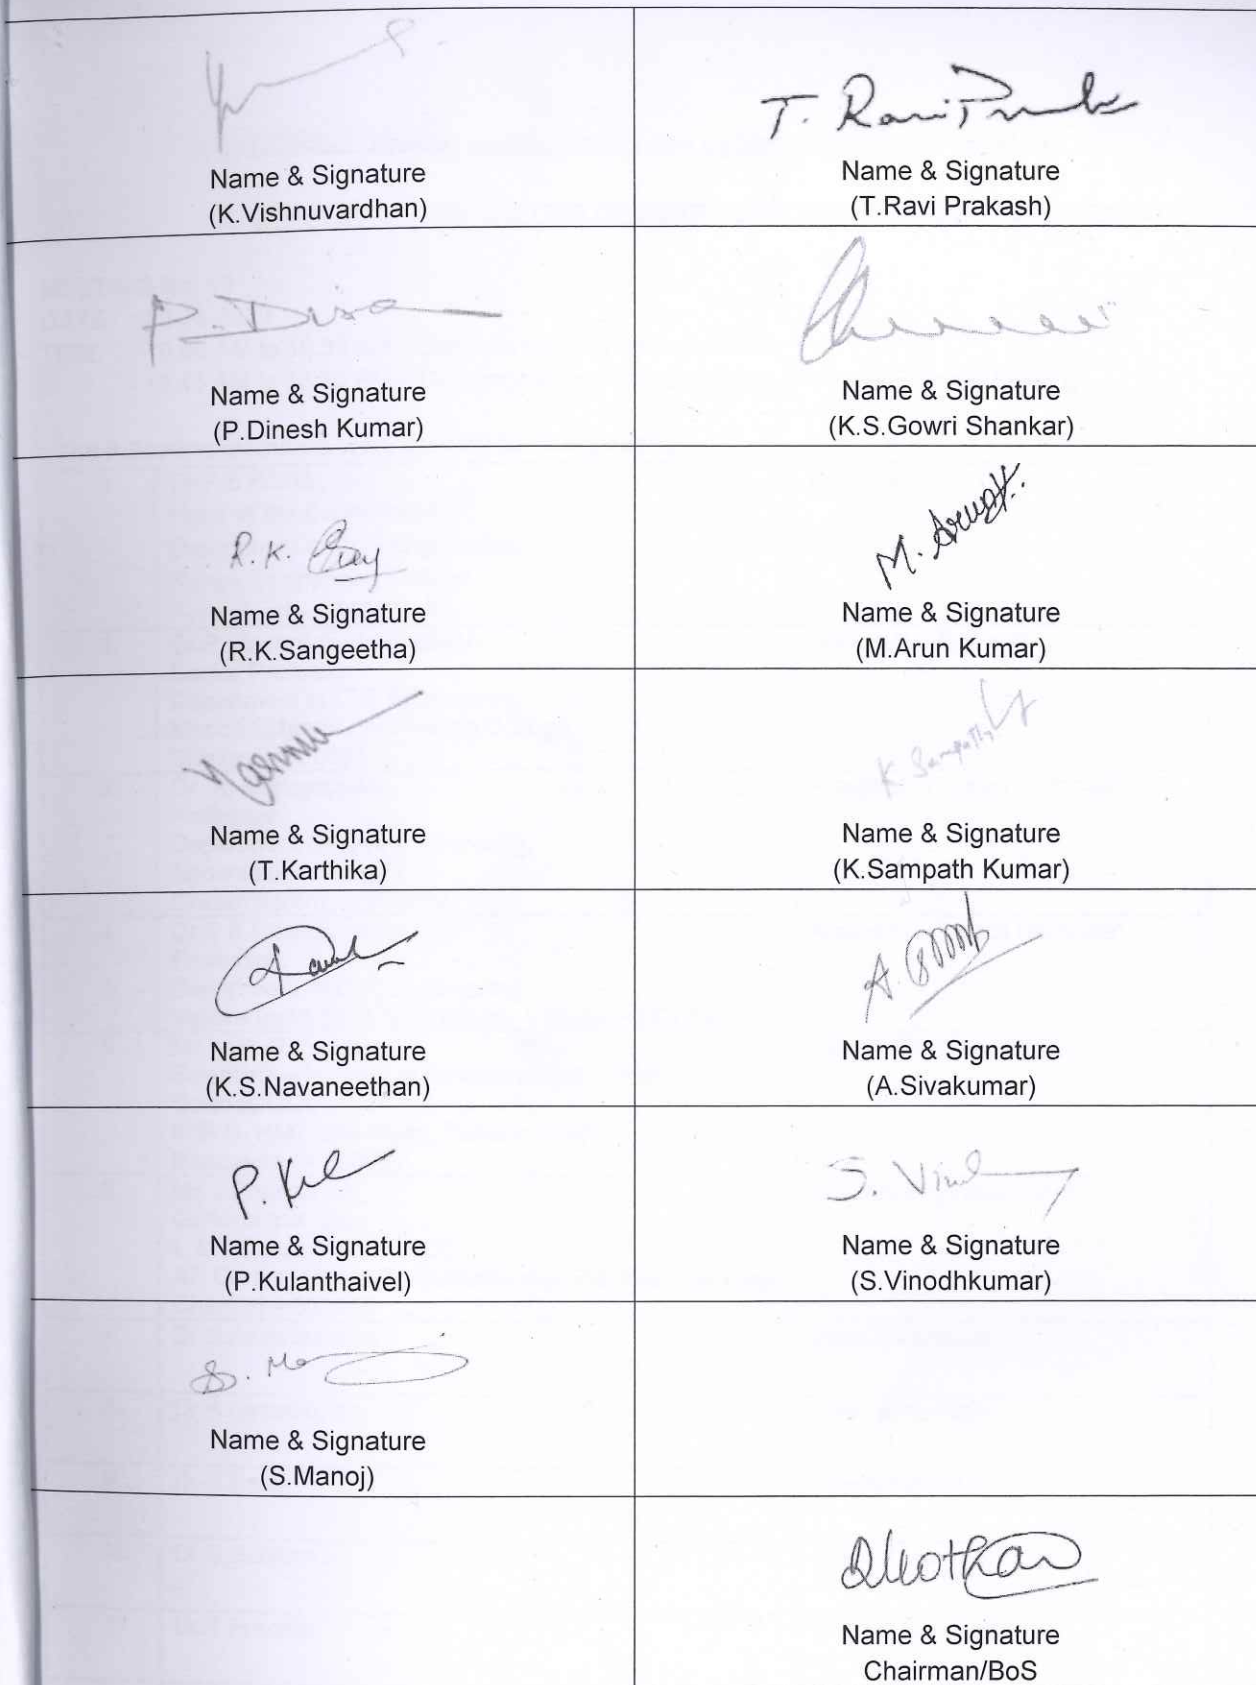 T. Ravi
Name & Signature
(K.Vishnuvardhan)
Name & Signature
(T.Ravi Prakash)
P.
Name & Signature
(P.Dinesh Kumar)
Name & Signature
(K.S.Gowri Shankar)
R.K.
M. Arun
Name & Signature
(R.K.Sangeetha)
Name & Signature
(M.Arun Kumar)
K Sampath
Name & Signature
(T.Karthika)
Name & Signature
(K.Sampath Kumar)
A.
Name & Signature
(K.S.Navaneethan)
Name & Signature
(A.Sivakumar)
P.
S.
Name & Signature
(P.Kulanthaivel)
Name & Signature
(S.Vinodhkumar)
S.
Name & Signature
(S.Manoj)
Name & Signature
Chairman/BoS